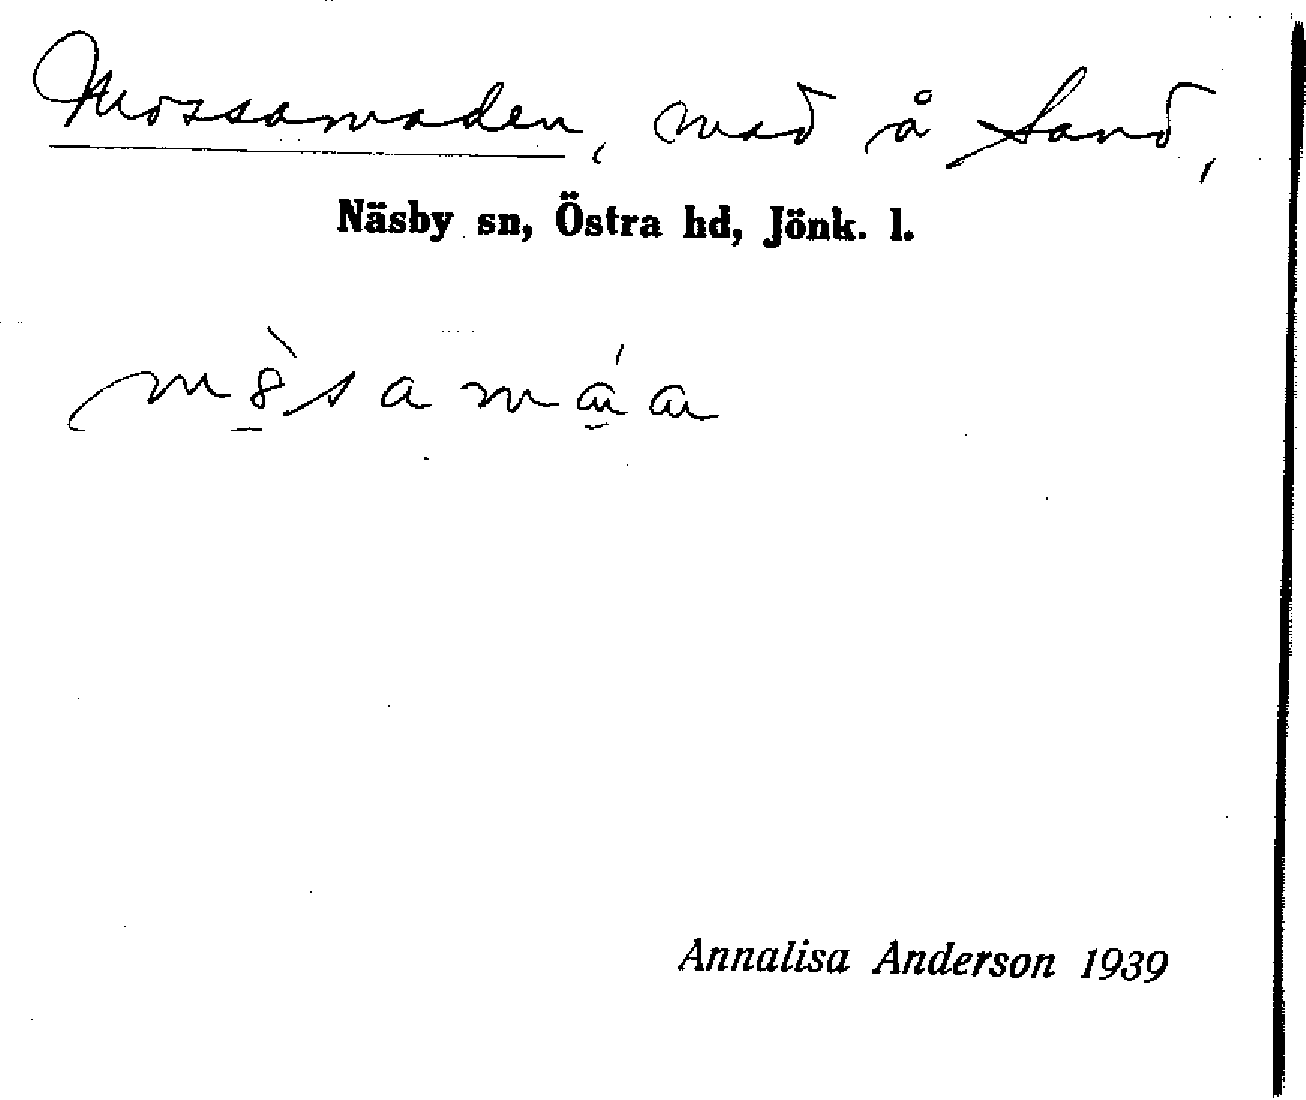 Mossamaden, mad å Sand,
Näsby sn, Östra hd, Jönk. l.
Annalisa Anderson 1939